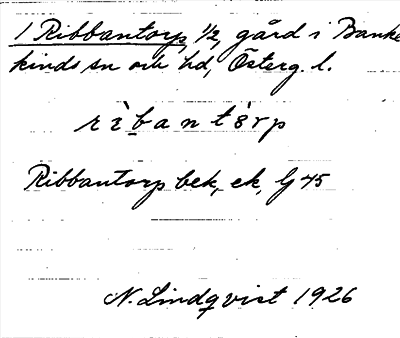 1 Ribbantorp, 1/2, gård i Banke
kinds sn och hd, Österg. l.
rìbantòrp
Ribbantorp bek, ek, Lj 45
N. Lindqvist 1926